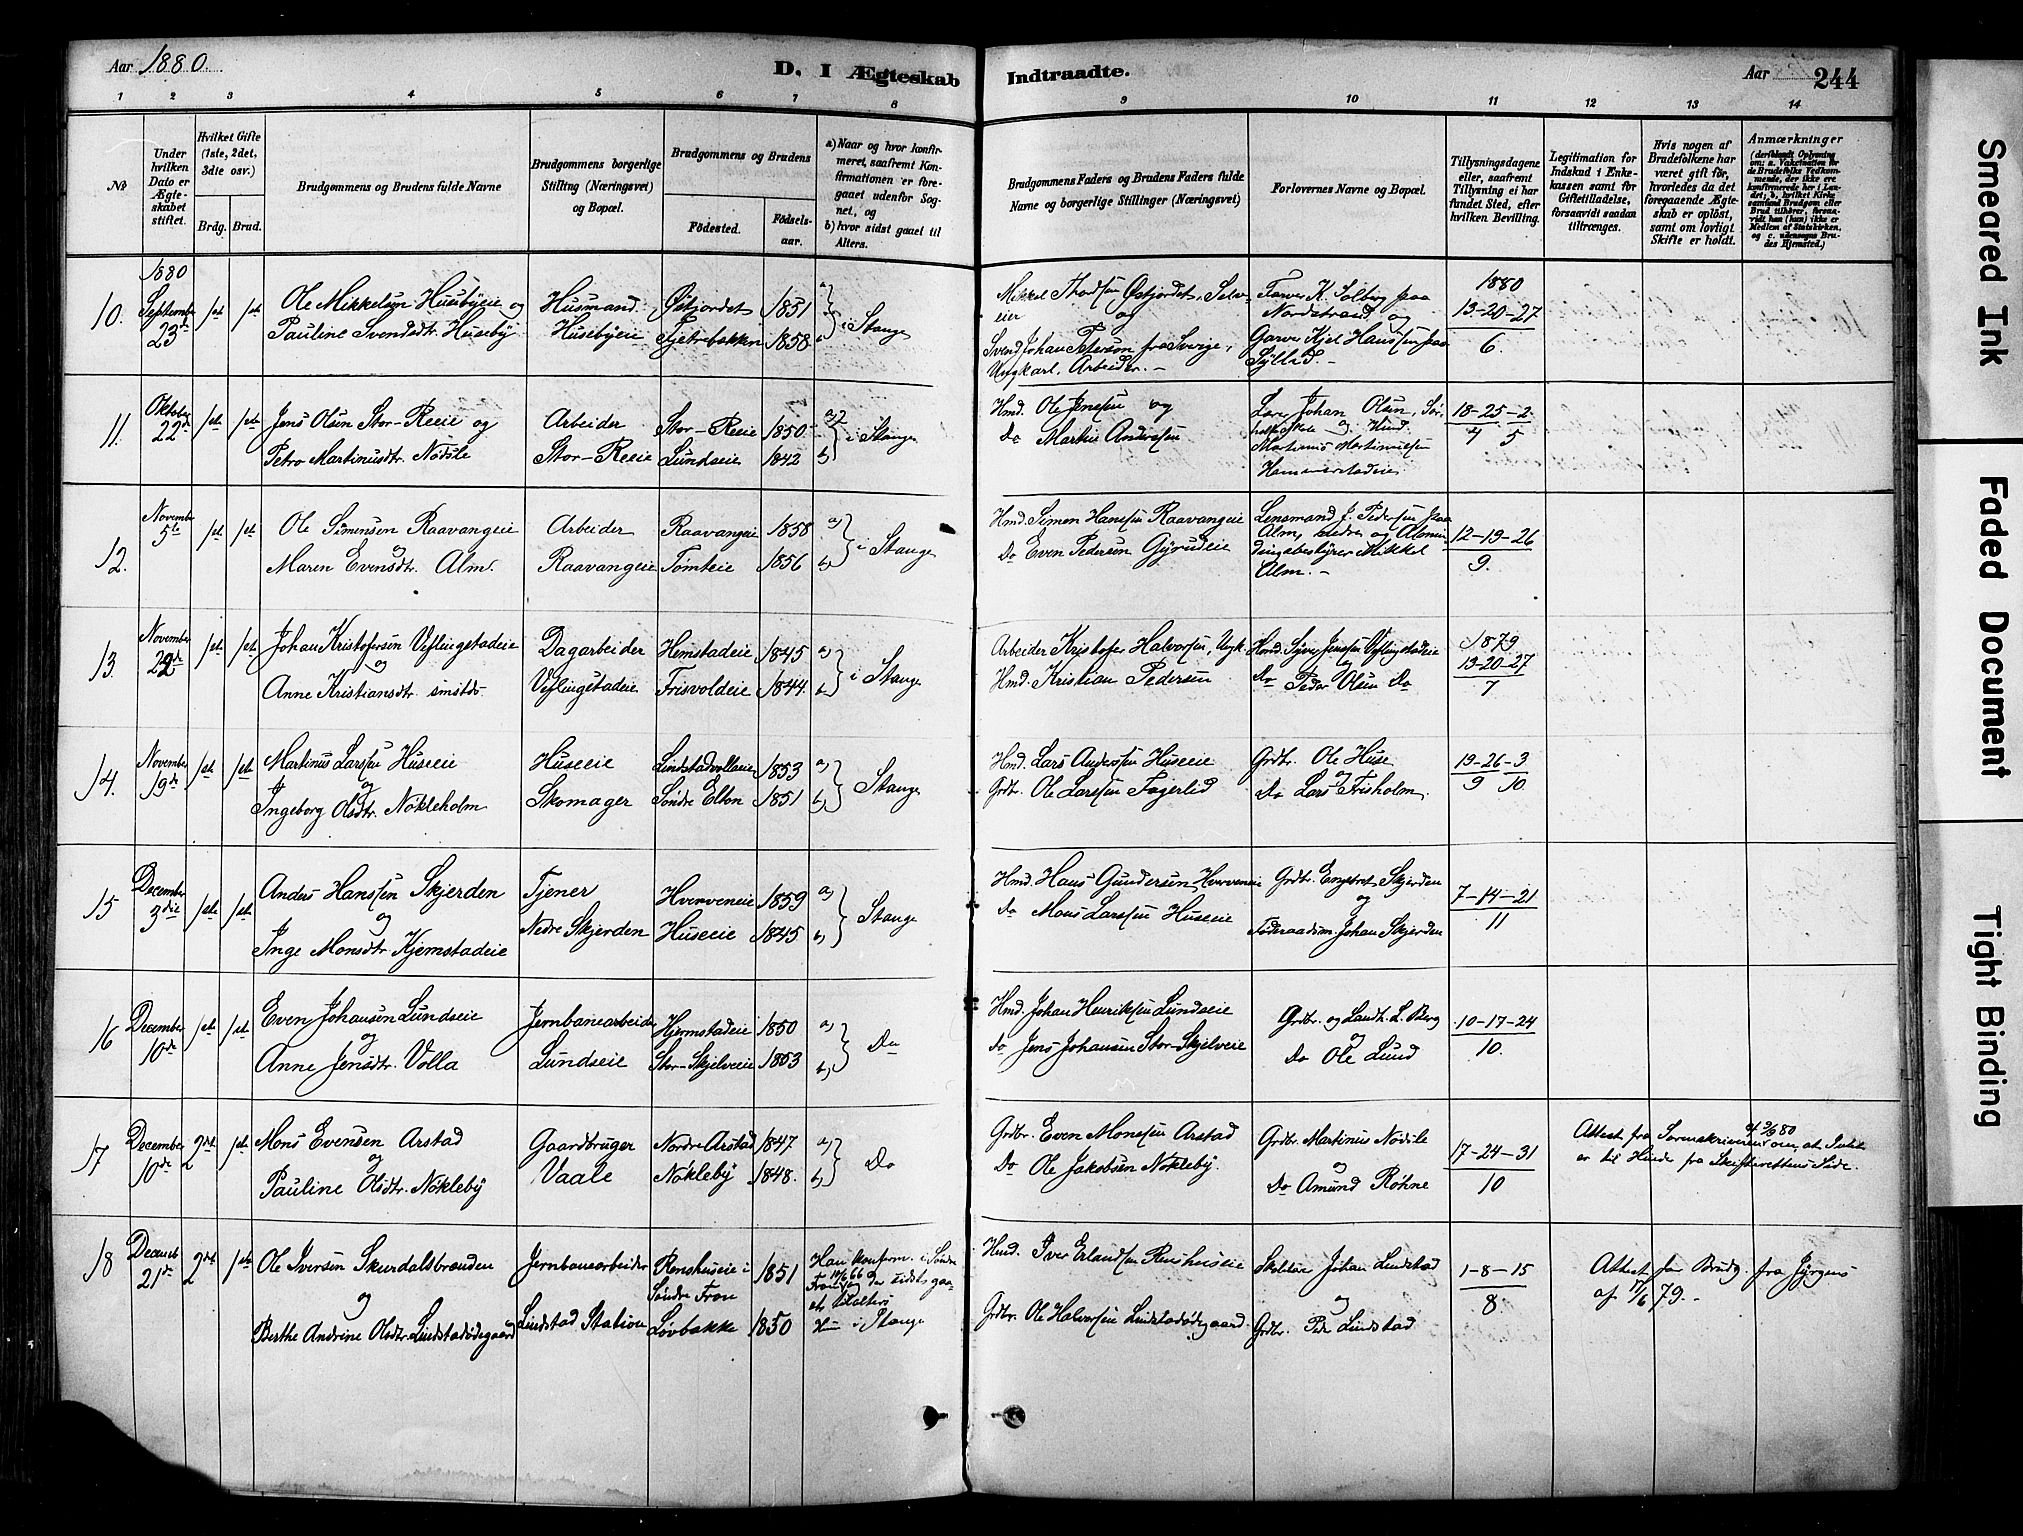 Aar 1880.
D. I Ægteskab Indtraadte.
Aar
244
1 2 3 4 5 6 7 8 9 10 11 12 13 14
No
Under hvilken Dato er Ægteskabet stiftet.
Hvilket Gifte (1ste, 2det, 3die osv.)
Brdg. Brud.
Brudgommens og Brudens fulde Navne
Brudgommens borgerlige Stilling (Næringsvei) og Bopæl.
Brudgommens og Brudens
Fødested. Fødselsaar.
a) Naar og hvor konfirmeret, saafremt Konfirmationen er foregaaet udenfor Sognet, og
b) hvor sidst gaaet til Alters.
Brudgommens Faders og Brudens Faders fulde Navne og borgerlige Stillinger (Næringsvei)
Forlovernes Navne og Bopæl.
Tillysningsdagene eller, saafremt Tillysning ei har fundet Sted, efter hvilken Bevilling.
Legitimation for Indskud i Enkekassen samt for Giftetilladelse, forsaavidt saadan tiltrænges.
Hvis nogen af Brudefolkene har været gift før, hvorledes da det foregaaende Ægteskab er opløst, samt om lovligt Skifte er holdt.
Anmærkninger (deriblandt Oplysning om: a. Vakcination for de Brudefolks Vedkommende, der ikke ere konfirmerede her i Landet, b. hvilket Kirkesamfund Brudgom eller Brud tilhører, forsaavidt han (hun) ikke er Medlem af Statskirken, og c. udensogns Brudes Hjemsted.)
10. 1880 September 23de 1ste 1ste
Ole Mikkelsen Husebyeie og
Pauline Svendsdtr. Huseby
Husmand
Husebyeie
Østjordet 1851
Fjetrebakken 1858
a) b) i Stange
Mikkel Thodsen Østjordet, Selveier og
Svend Johan Peterson fra Sverige,
Ungkarl. Arbeider.
Farver K. Solberg paa Nordstrand og
Garver Kjel Hanssen paa Syllid.
1880
13-20-27
6.
11. Oktober 22de 1ste 1ste
Jens Olsen Stor-Reeie og
Petro Martinusdtr. Nødsle
Arbeider
Stor-Reeie
Stor-Reeie 1850
Lundseie 1842
a) b) i Stange
Hmd. Ole Jensen og
Do Martin Andersen
Johan Olsen,
og Hmd.
Martinus Martinussen
Hammerstadeie
18-25-2.
4 5
12. November 5te 1ste 1ste
Ole Simensen Raavangeie
og
Maren Evensdtr. Alm.
Arbeider
Raavangeie
Raavangeie 1858
Tomteie 1856
a) b) i Stange
Hmd. Simen Hansen Raavangeie
Do Even Pedersen Gyrudeie
Lensmand J. Pedersen paa
Alm, nedre og Almindingsbestyrer Mikkel
Alm.
12-19-26
9.
13. November 22de 1ste 1ste
Johan Kristofersen Veflingstadeie
og
Anne Kristiansdtr. smstds
Dagarbeider
Veflingstadeie
Hemstadeie 1845
Frisvoldeie 1844.
a) b) i Stange
Arbeider Kristofer Halvorsen, Ungk.
Hmd. Kristian Pedersen
Hmd. Syver Jensen Veflingstadeie
og
Do Peder Olsen Do
1879
13-20-27
7
14. November 19de 1ste 1ste
Martinus Larssen Huseeie
og
Ingeborg Olsdtr. Nøkleholm
Huseeie
Skomager
Lindstadvollaeie 1853
Søndre Elton 1851
a) b) Stange
Hmd. Lars Anderssen Huseeie
Grdbr. Ole Larssen Fagerlid
Grdbr. Ole Huse
og
Do Lars Frisholm.
19-26-3
9 10.
15 December 3die 1ste 1ste
Anders Hanssen Skjerden
og
Inge Monsdtr. Kjemstadeie
Tjener
Nedre Skjerden
Hverveneie 1859
Huseeie 1845
a) b) Stange
Hmd. Hans Gundersen Hverveneie
Do Mons Larssen Huseeie
Grdbr. Engebret Skjerden
og
Føderaadsm. Johan Skjerden
7-14-21
11
16 December 10de 1ste 1ste
Even Johansen Lundseie
og
Anne Jensdtr. Volla
Jernbanearbeider
Lundseie
Hjemstadeie 1850
Stor-Skjelveie 1853
a) b) Do
Hmd. Johan Henriksen Lundseie
Do Jens Johansen Stor-Skjelveie
Grdbr. og Landh. L. Berg
og
Do Ole Lund
10-17-24
10.
17 December 10de 2det 1ste
Mons Evensen Arstad
og
Pauline Olsdtr. Nøkleby
Gaardbruger
Vaale
Nordre Arstad 1847
Nøkleby 1848.
a) b) Do
Grdbr. Even Monssen Arstad
Do Ole Jakobsen Nøkleby.
Grdbr. Martinus Nødsle
og
Do Amund Røhne
17-24-31
10
Attest fra Sorenskriveren af 2/6 80 om, at Intet
er til Hinder fra Skifterettens Side.
18 Decemb 21de 2det 1ste
Ole Iversen Skurdalsbraaden
og
Berthe Andrine Olsdtr. Lindstadødegaard
Jernbanearbeider
Lindstad Station
Renshuseie i Søndre Fron 1851
Løvbakke 1850
Han konfirm. i Søndre
Fron 10/6 66 Der sidst gaaet til Alters
Hun i Stange
Hmd. Iver Erlandsen Renshuseie
Grdbr. Ole Halvorsen Lindstadødegaard.
Johan Lindstad
og
Grdbr. Peder Lindstad
1-8-15
8.
Attest for Brudg. fra
af 17/6 79.
Smeared Ink
Faded Document
Tight Binding